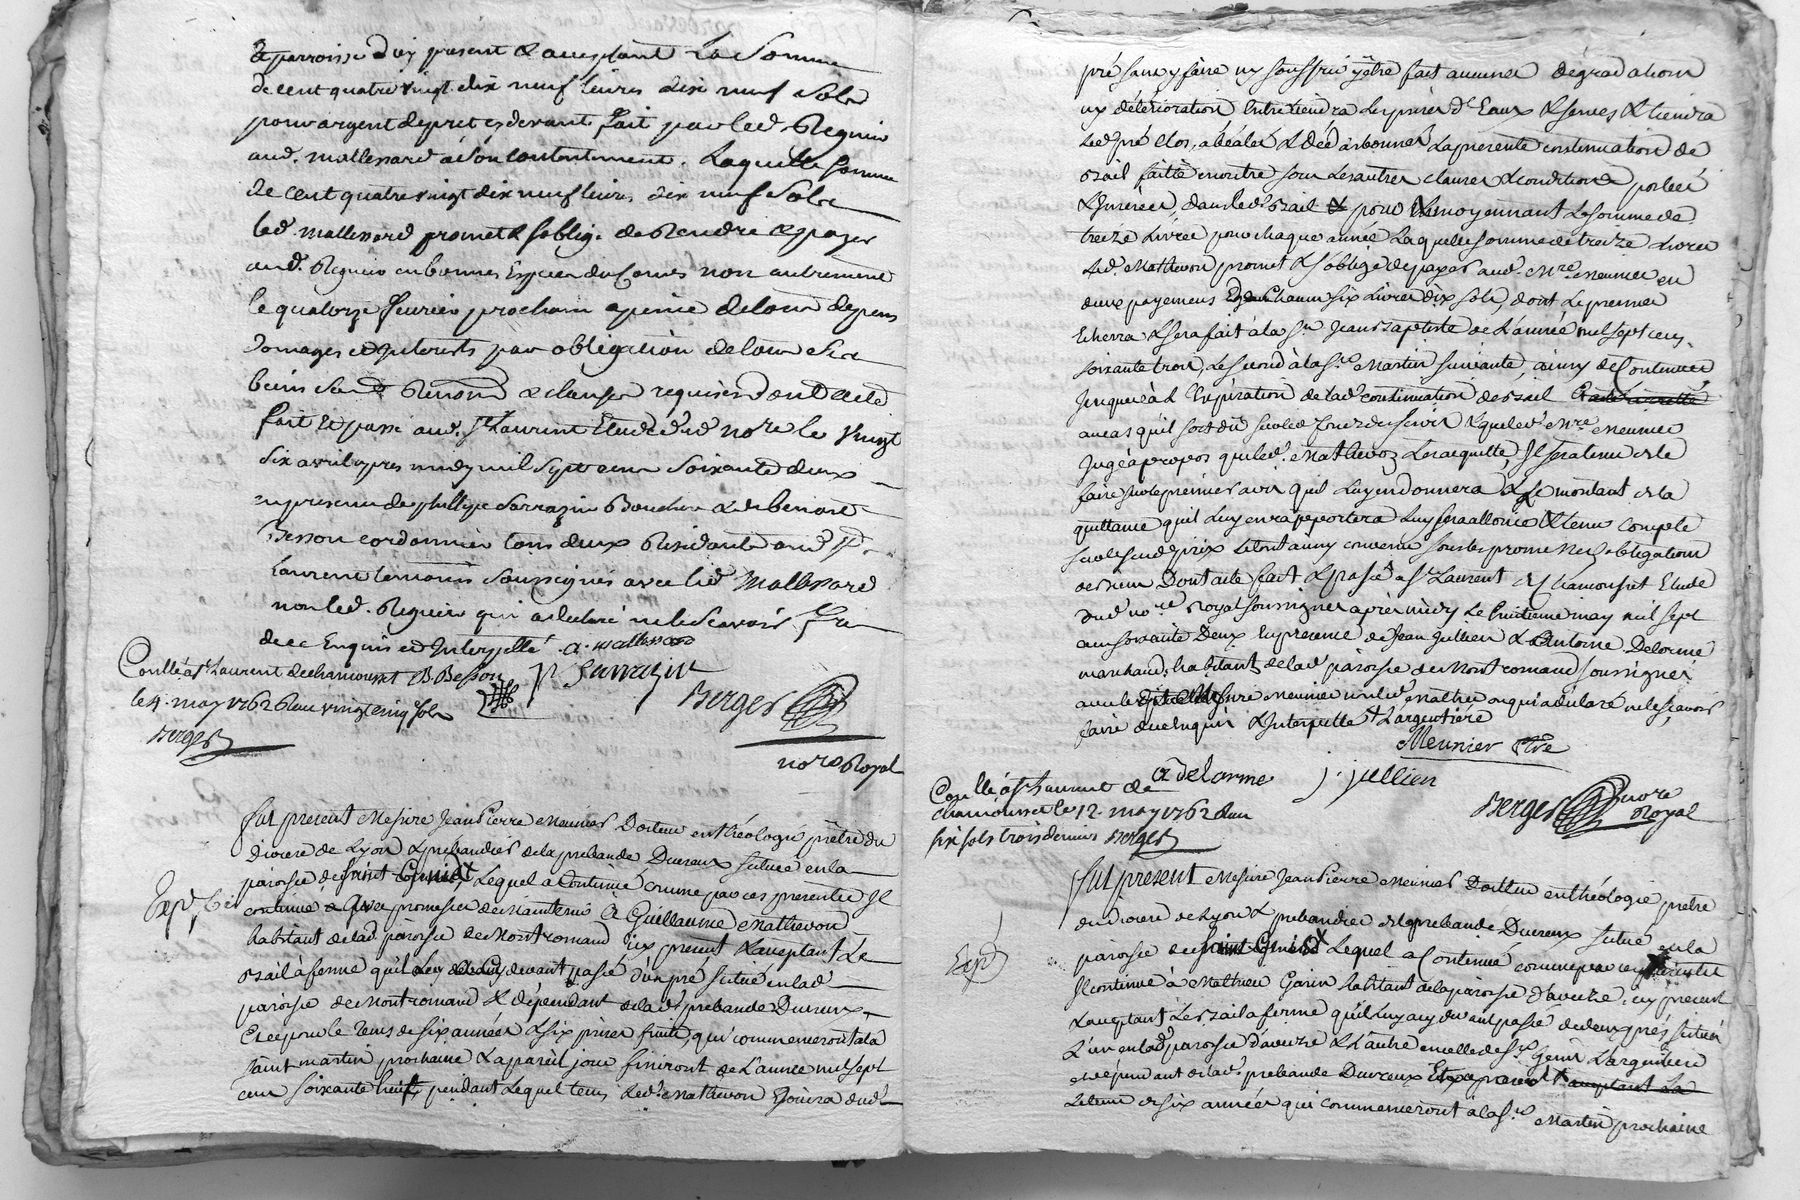 & parroisse d'icy present & acceptant La Somme
de cent quatre vingt dix neuf livres dix neuf Sols
pour argent de pret cy devant fait par led. Reguin
aud. mallessard à son contentement. Laquelle somme
de cent quatre vingt dix neuf livres dix neuf Sols
led. mallessard promet & soblige de Rendre & payer
aud. Reguin en bonnes Especes du Cours non autrement
le quatorze fevrier prochain a peine de tous depens
domages et Interests par obligation de tous ses
biens Renon & clauses requises dont acte
fait et passé aud. St Laurent Etude dud nore le vingt
six avril apres midy mil sept cent soixante deux
en presence de phillipe Sarrazin Boucher & de benoit
Besson cordonnier tous deux Residants aud St
Laurent temoins soussignes avec led Mallessard
non led. Reguin qui a declaré ne le Scavoir f
de ce Enquis et Interpellé. a. mallessard
Conllé à St Laurent de chamousset B. Besson P Sarrazin
le 4. may 1762 Reçu vingt cinq sols
Berges
Berges
nore Royal
fut present Messire Jean Pierre Meunier Docteur en théologie prêtre du
Diocese de Lyon & prebandier de la prebande Duereux située en la
paroisse de Saint Genis Lequel a Continué comme par ces presentes Il
continue & avec promesse de maintenir à Guillaume Mathevon
habitant de lad. paroisse de Montromand Icy present & acceptant Le
Bail à ferme qu'il Luy a cy devant passé d'un pré situé en lad
paroisse de Montromand & dépendant de lad. prebande Duereux
Et ce pour le tems de six années & six prises fruits, qui commenceront à la
saint martin prochaine & a pareil jour finiront de L'année mil sept
cent soixante huit, pendant Lequel tems Led. Mathevon Jouira dud
Expd
pré sans y faire ny souffrir y être fait aucunes dégradations
ny détérioration Entretiendra Les prises d'Eaux & serves & tiendra
Led. pré clos, La presente continuation de
Bail faitte en outre sous Les autres clauses & conditions portées
& Inserées dans led. Bail & pour & moyennant La somme de
treize Livres pour chaque année Laquelle somme de treize Livres
Led. Mathevon promet & s'oblige de payer aud. Mre. Meunier en
deux payemens Egaux chacun six Livres dix sols, dont Le premier
Echerra & sera fait à la St Jean Baptiste de L'année mil sept cens
soixante trois, Le second à la St. Martin suivante, ainsy de Continuer
Jusques à L'Expiration de lad. continuation de Bail
au cas qu'il soit dû & que led. Mre Meunier
Juge à propos que led. Mathevon Les acquitte, Il sera tenu de le
faire sur le premier avis qu'il Luy en donnera & Le montant de la
quittance qu'il Luy en rapportera Luy sera alloué & tenu compte
sur lesud. prix Le tout ainsy convenu sous les promesses, obligations
de biens Dont acte fait & passé à St. Laurent de Chamousset Etude
Dud. nore Royal soussigné après midy Le huitieme may mil sept
cens soixante Deux En presence de Jean Jullien & Antoine Delorme
marchand, habitants de lad. paroisse de Montromand soussignés
avec led. Messire Meunier non led. Mathevon qui a déclaré ne le sçavoir
faire de ce Enquis & Interpellé + L'argentière
Meunier Ptre
a delorme J. jullien
Conllé à St Laurent de
chamousset le 12. may 1762 Reçu
six sols trois deniers Berges
Berges nore
Royal
fut present Messire Jean Pierre Meunier Docteur en théologie prêtre
du Diocese de Lyon & prebandier de la prebande Duereux située en la
paroisse de Saint Genis Lequel a Continué comme par ces presentes
Il continue à Mathieu Garin habitant de la paroisse d'aveize icy present
& acceptant Le Bail à ferme qu'il Luy a cy devant passé de deux prés situés
L'un en lad. paroisse d'aveize & L'autre en celle de St. Genis L'argentiere
& dépendant de lad. prebande Duereux Icy present & acceptant Le
Le tems de six années qui commenceront à la St. Martin prochaine
Expd